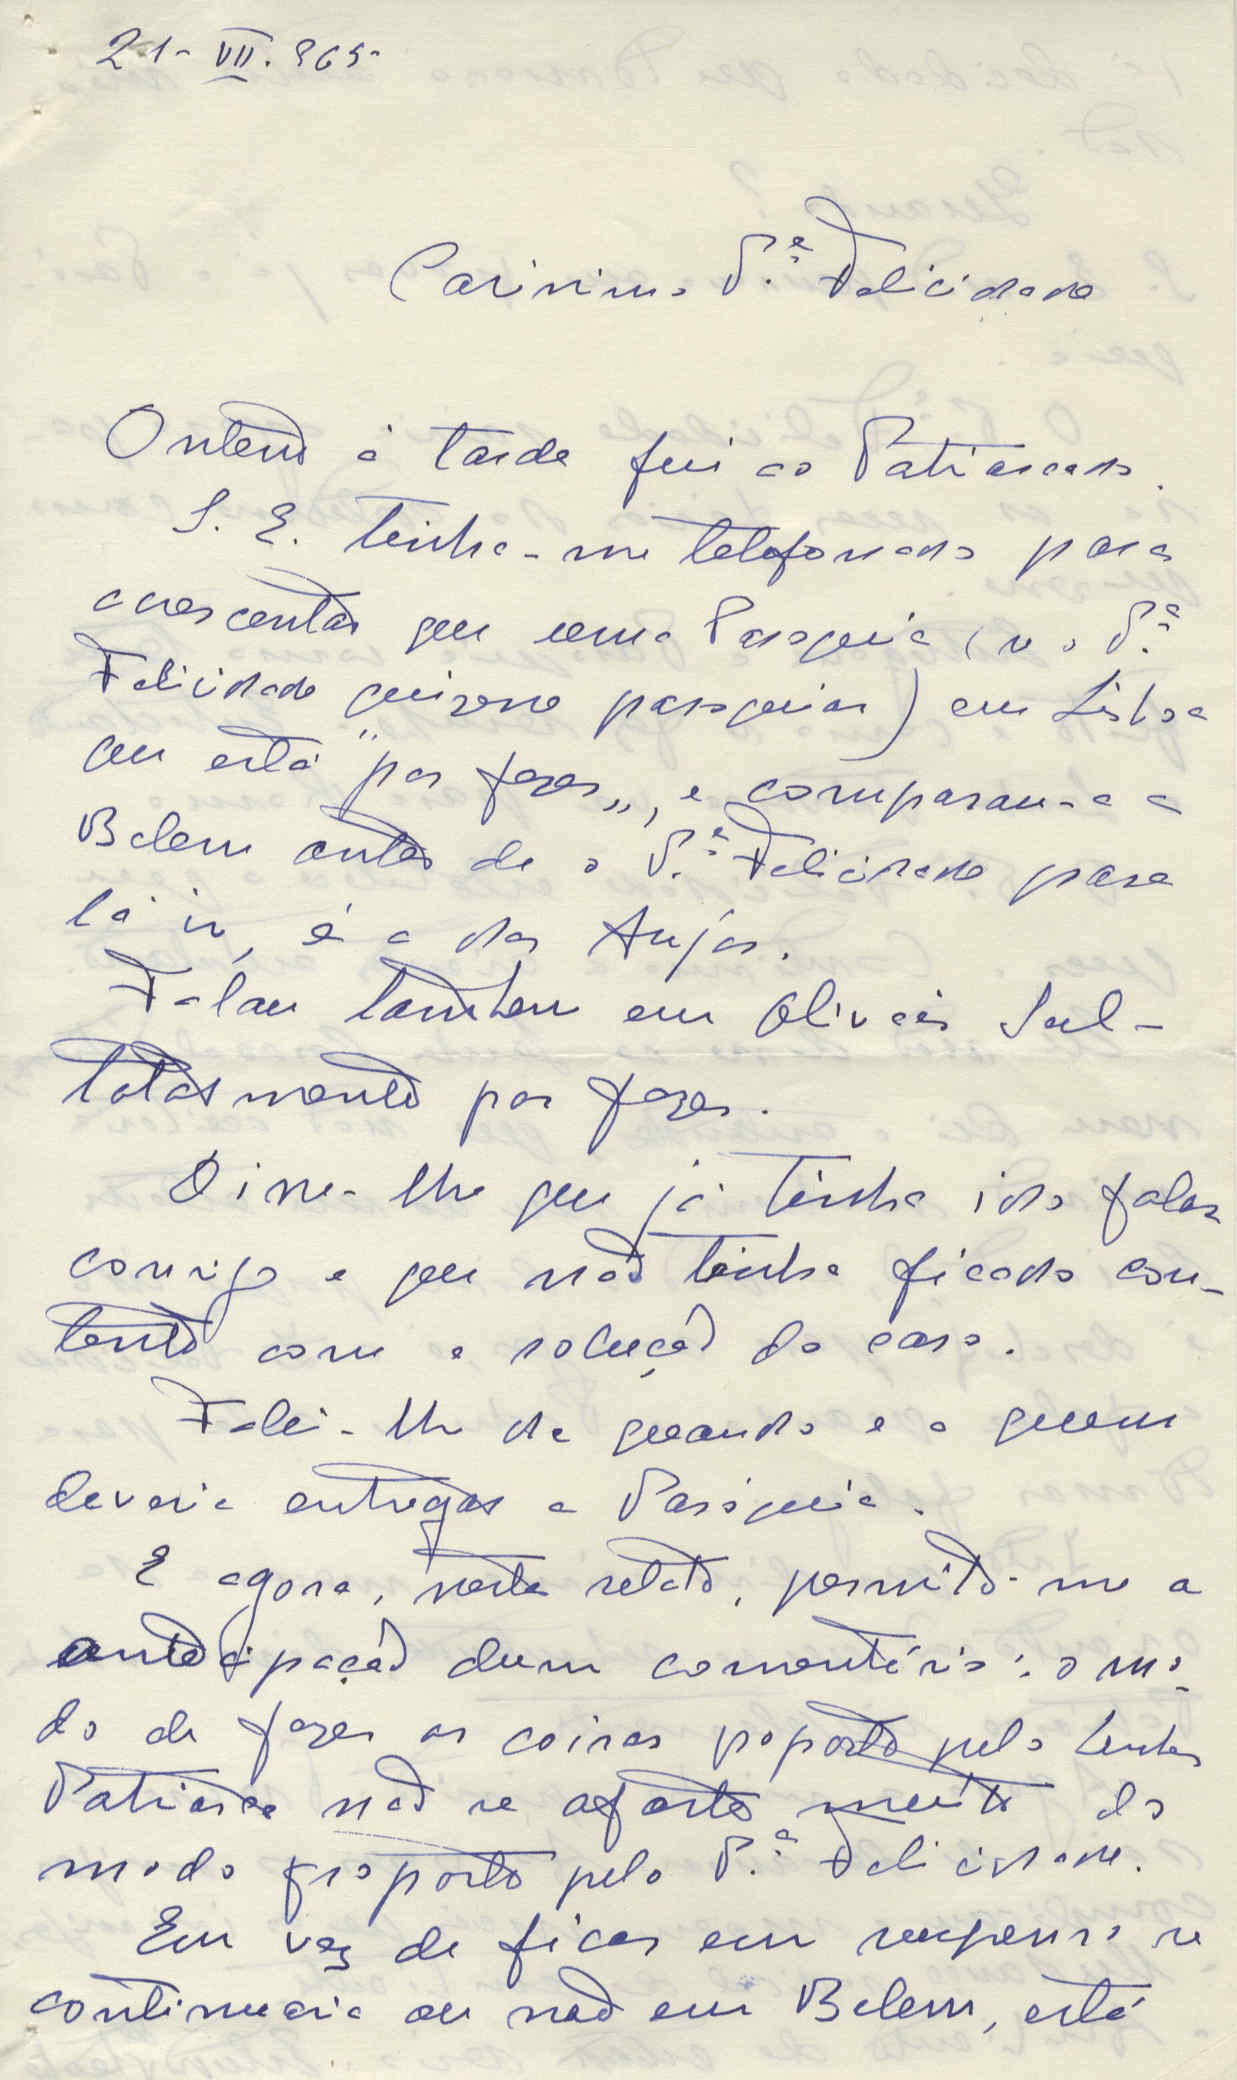 21-VII.965-
Caríssimo P.e Felicidade
Ontem à tarde fui ao Patriarcado.
S. E. tinha-me telefonado para
acrescentar que uma Paróquia (se o P.e
Felicidade quizesse paroquiar) em Lisboa
que está "por fazer", e comparou-a a
Belem antes de o P.e Felicidade para
lá ir, é a dos Anjos.
Falou tambem em Olivais Sul-
totalmente por fazer.
Disse-lhe que já tinha ido falar
comigo e que não tinha ficado con-
tente com a solução do caso.
Falei-lhe de quando e a quem
deveria entregar a Paróquia.
E agora, neste relato, permito-me a
antecipação dum comentário: o mo-
do de fazer as coisas proposto pelo Senhor
Patriarca não se afasta muito do
modo proposto pelo P.e Felicidade.
Em vez de ficar em suspenso se
continuaria ou não em Belem, está